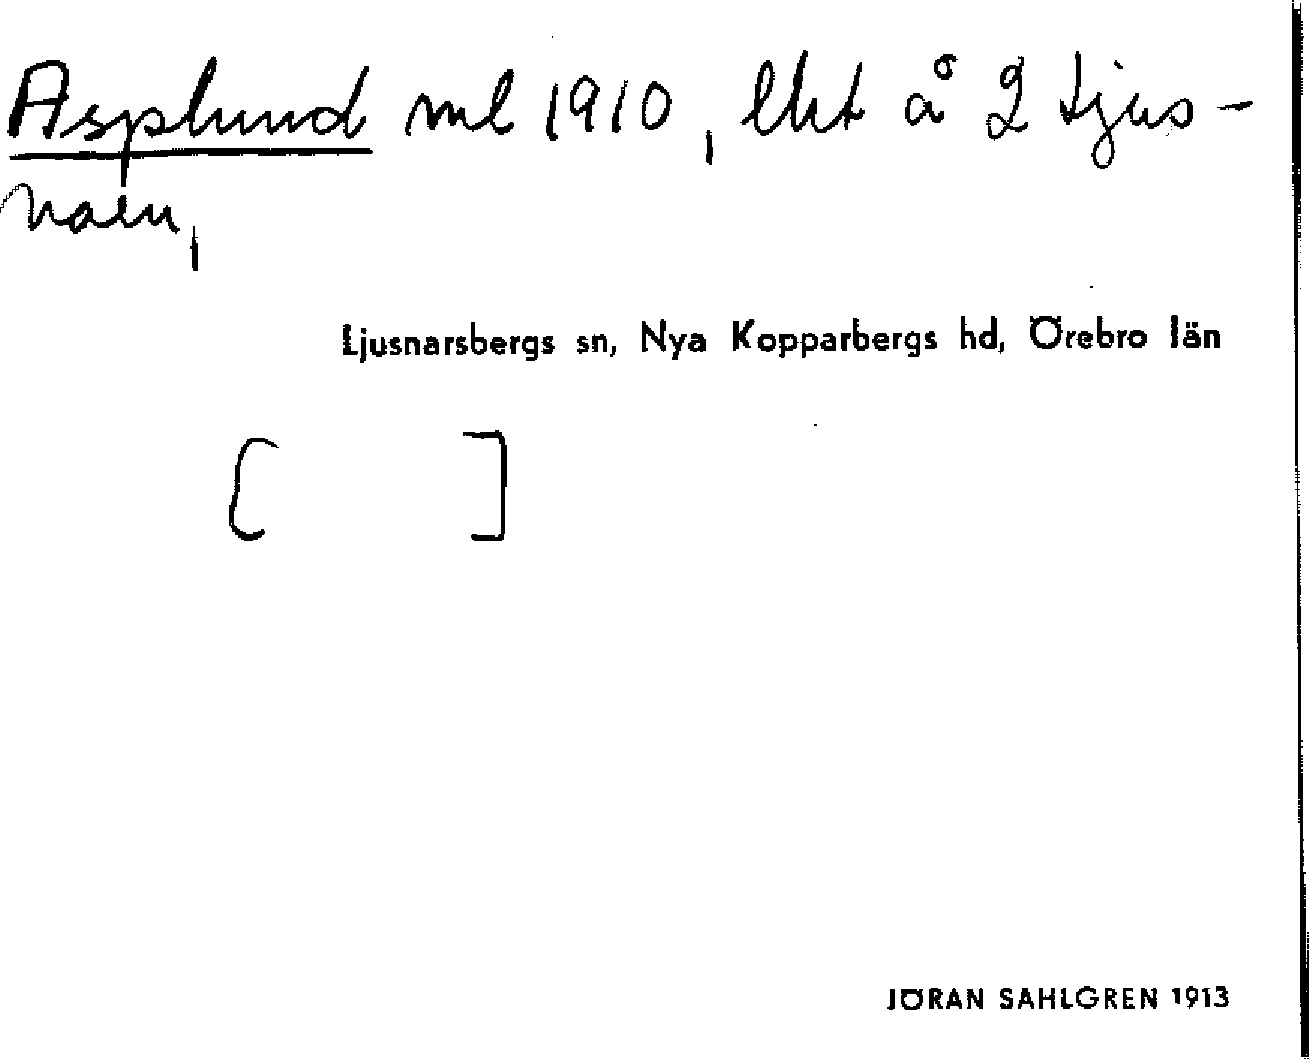 Asplund ml 1910, lht å 2 Ljus-
naen,
Ljusnarsbergs sn, Nya Kopparbergs hd, Örebro län
[ ]
JÖRAN SAHLGREN 1913